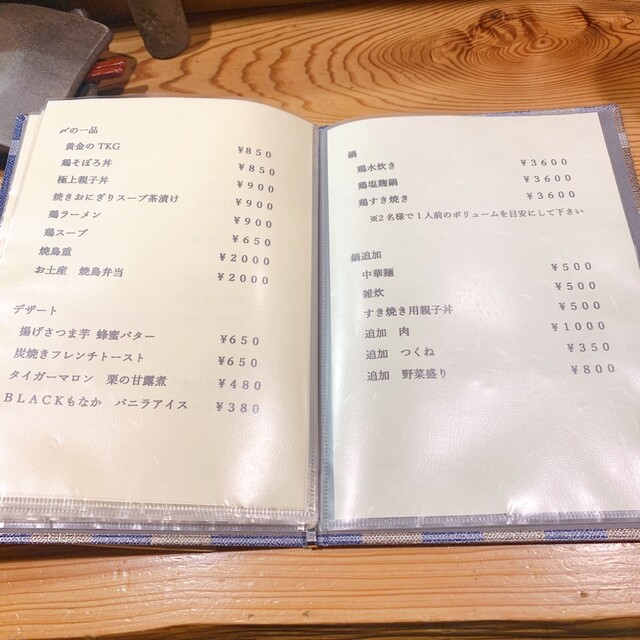 〆の一品
黄金のTKG ¥850
鶏そぼろ丼 ¥850
極上親子丼 ¥900
焼きおにぎりスープ茶漬け ¥900
鶏ラーメン ¥900
鶏スープ ¥650
焼鳥重 ¥2000
お土産 焼鳥弁当 ¥2000
デザート
揚げさつま芋 蜂蜜バター ¥650
炭焼きフレンチトースト ¥650
タイガーマロン 栗の甘露煮 ¥480
BLACKもなか バニラアイス ¥380
鍋
鶏水炊き ¥3600
鶏塩麹鍋 ¥3600
鶏すき焼き ¥3600
※2名様で1人前のボリュームを目安にして下さい
鍋追加
中華麺 ¥500
雑炊 ¥500
すき焼き用親子丼 ¥500
追加 肉 ¥1000
追加 つくね ¥350
追加 野菜盛り ¥800